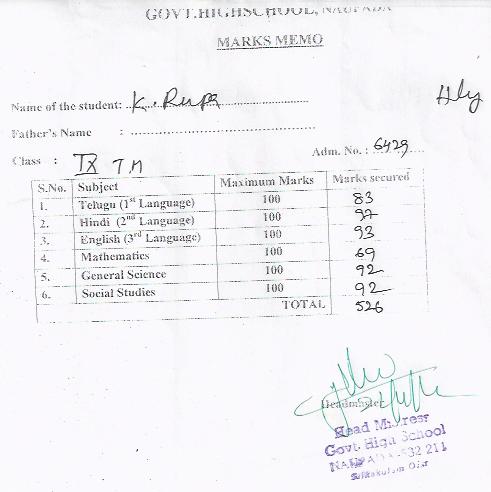 GOVT.HIGHSCHOOL, NAUPADA
MARKS MEMO
Name of the student: K. Rupa
Hly
Father's Name :
Class : IX T.M
Adm. No. : 6429
S.No. Subject Maximum Marks Marks secured
1. Telugu (1st Language) 100 83
2. Hindi (2nd Language) 100 97
3. English (3rd Language) 100 93
4. Mathematics 100 69
5. General Science 100 92
6. Social Studies 100 92
TOTAL 526
Headmaster
Head Mistress
Govt. High School
NAUPADA-532 211
Srikakulam Dist